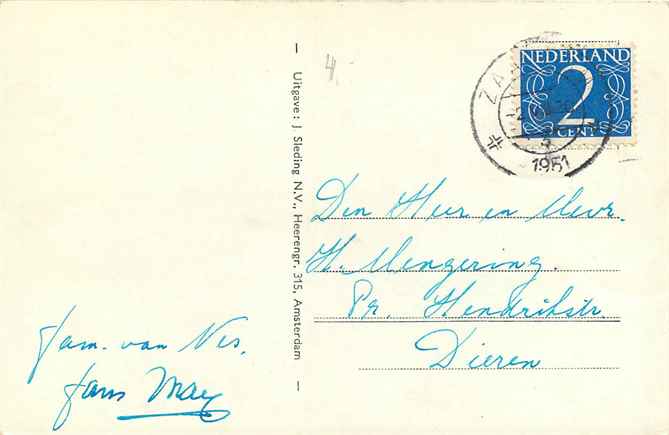 4
NEDERLAND
2
CENT
ZA
1951
Uitgave: J Sleding N.V., Heerengr. 315, Amsterdam
Den Heer en Mevr.
H. Mengering.
Pr. Hendrikstr.
Dieren
fam. van Nes.